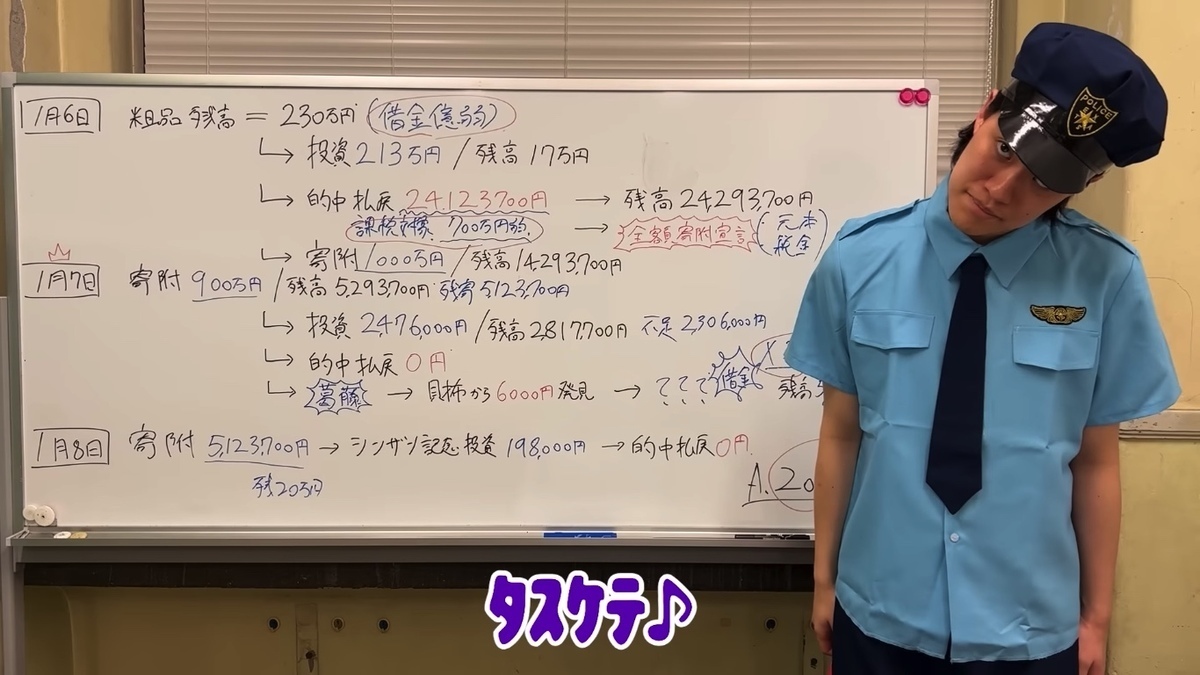 1月6日 粗品 残高 = 230万円 (借金億弱)
↳ 投資 213万円 / 残高 17万円
↳ 的中払戻 24,123,700円 → 残高 24,293,700円
課税対象 700万円弱 → 全額寄附宣言 (元本 税金)
↳ 寄附 1000万円 / 残高 14,293,700円
1月7日 寄附 900万円 / 残高 5,293,700円 残寄 5,123,700円
↳ 投資 2,476,000円 / 残高 2,817,700円 不足 2,306,000円
↳ 的中払戻 0円
↳ 葛藤 → 財布から 6000円 発見 → ??? 借金
残高
1月8日 寄附 5,123,700円 → シンザン記念 投資 198,000円 → 的中払戻 0円
残20万円
A. 20
POLICE
タスケテ♪